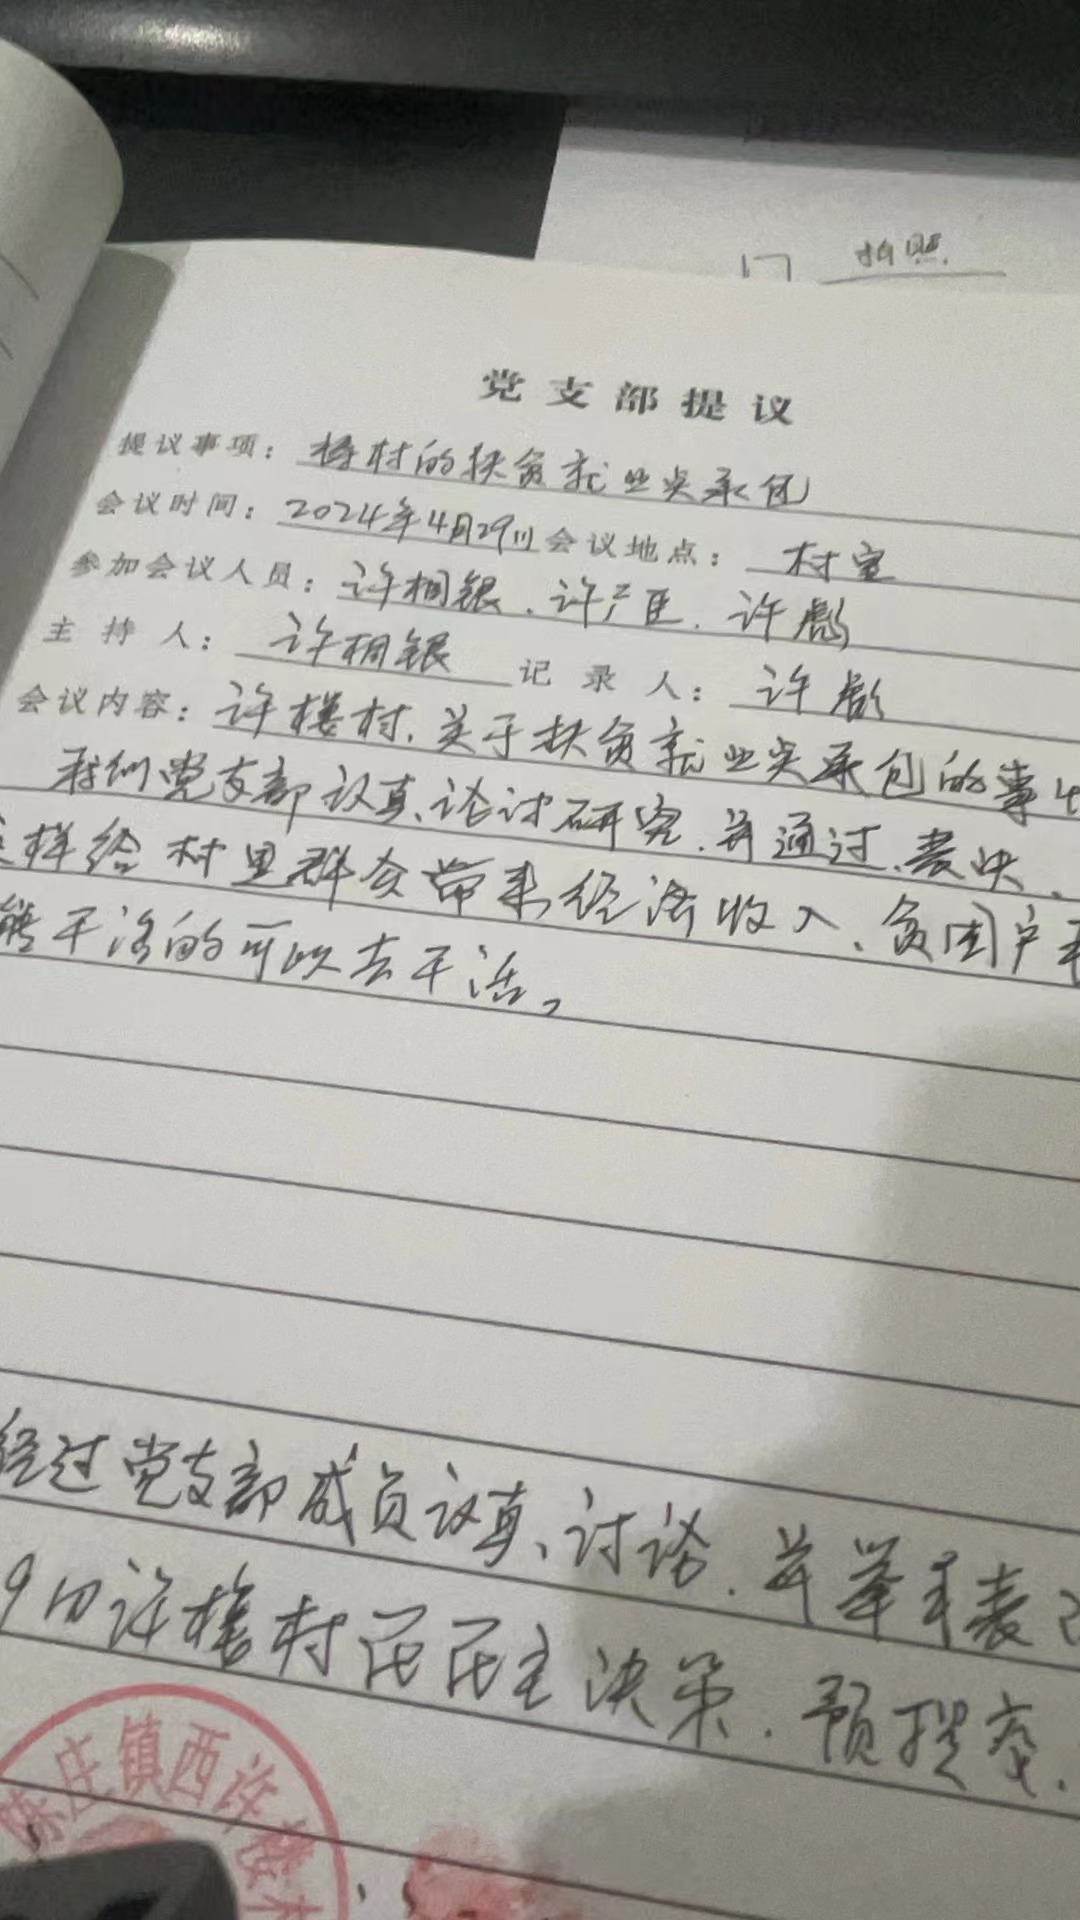 拍照
党支部提议
提议事项：村的扶贫就业点承包
会议时间：2024年4月29日会议地点：村室
参加会议人员：许桐银、许广臣、许彪
主持人：许桐银 记录人：许彪
会议内容：许楼村、关于扶贫就业点承包的事
我们党支部认真、论讨研究、并通过、表决、
样给村里群众带来经济收入、贫困户
能干活的可以去干活。
经过党支部成员认真、讨论、并举手表
9日许楼村民民主决策、预提交、
陈庄镇西许楼村